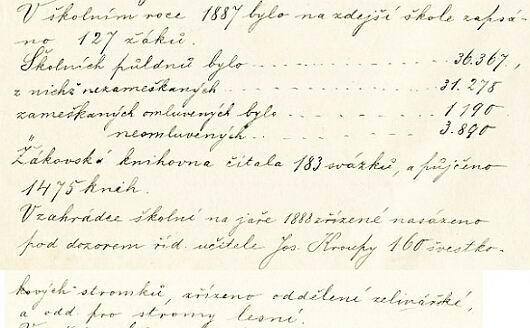 V školním roce 1887 bylo na zdejší škole zapsá-
no 127 žáků.
Školních půldnů bylo - - - - - - - - - - 36.367.,
z nichž nezameškaných - - - - - - - - 31.278
zameškaných omluvených bylo - - - - - 1.190
" neomluvených - - - - - - - - 3.890
Žákovská knihovna čítala 183 svazků, a půjčeno
1475 kněh.
V zahrádce školní na jaře 1888 zřízené nasázeno
pod dozorem říd. učitele Jos. Kroupy 160 švestko-
kových stromků, zřízeno oddělení zelinářské,
a odd pro stromy lesní.